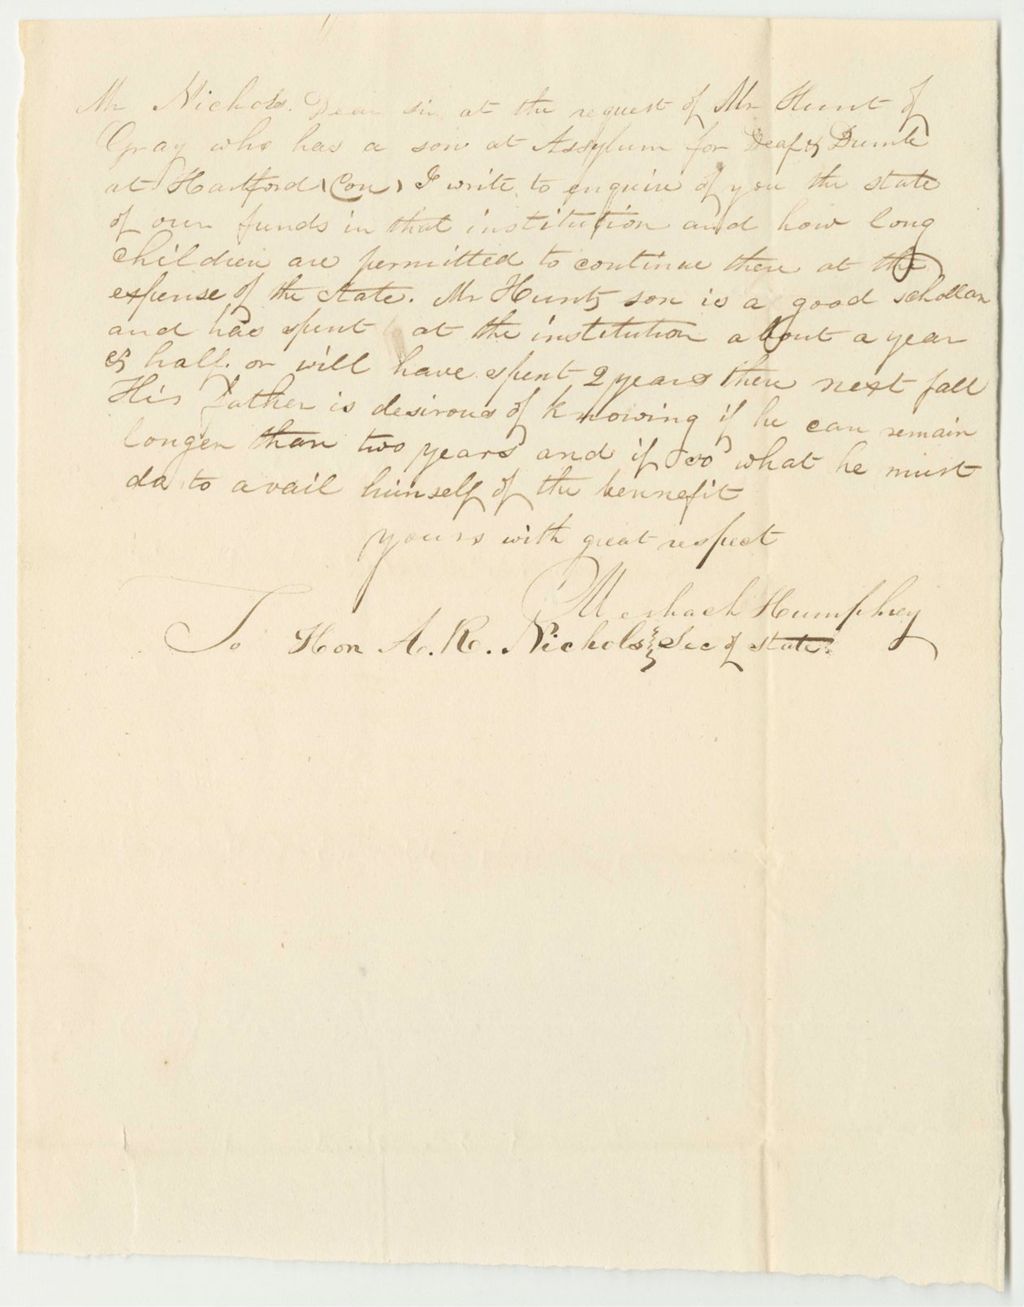 Mr Nichols. Dear sir, at the request of Mr Hunt of
Gray who has a son at Assylum for Deaf & Dumb
at Hartford (Con) I write to enquire of you the state
of our funds in that institution and how long
children are permitted to continue there at the
expense of the State. Mr Hunts son is a good schollar
and has spent at the institution about a year
& half. or will have spent 2 years there next fall
His father is desirous of knowing if he can remain
longer than two years and if so what he must
do to avail himself of the bennefit
yours with great respect
Meshach Humphrey
To Hon A. R. Nichols Sec of State.